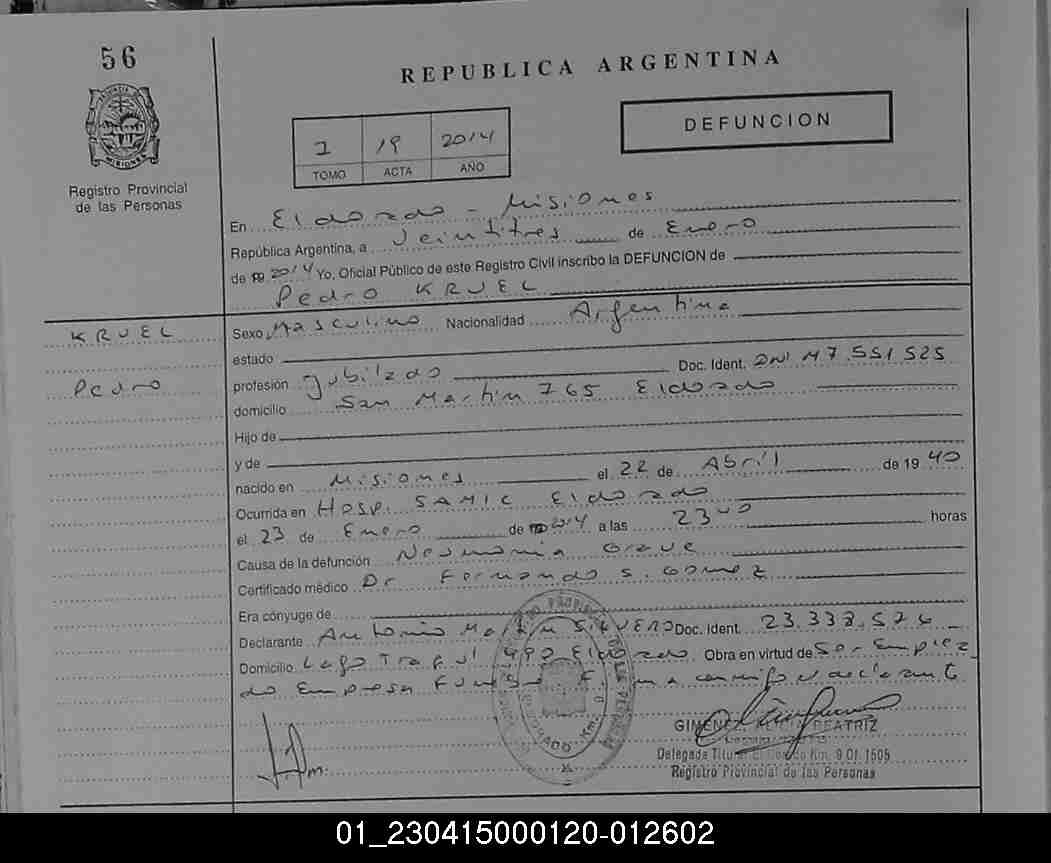 56
REPUBLICA ARGENTINA
PROVINCIA DE MISIONES
Registro Provincial
de las Personas
1 19 2014
TOMO ACTA AÑO
DEFUNCION
En Eldorado - Misiones
República Argentina, a Veintitres de Enero
de 19 2014 Yo, Oficial Público de este Registro Civil inscribo la DEFUNCION de
Pedro KRUEL
KRUEL
Pedro
Sexo Masculino Nacionalidad Argentina
estado
profesión Jubilado Doc. Ident. DNI M7.551525
domicilio San Martin 765 Eldorado
Hijo de
y de
nacido en Misiones el 22 de Abril de 19 40
Ocurrida en Hosp. SAMIC Eldorado
el 23 de Enero de 2014 a las 23 00 horas
Causa de la defunción Neumonia Grave
Certificado médico Dr Fernando S. Gomez
Era cónyuge de
Declarante Antonio Martin SILVERO Doc. Ident. 23.338.574
Domicilio Lago Traful 492 Eldorado Obra en virtud de Ser Emplea
do Empresa Funebre Firma conmigo el declarante
GIMENEZ, ALICIA BEATRIZ
Delegada Titular Eldorado Km. 9 Of. 1505
Registro Provincial de las Personas
01_230415000120-012602